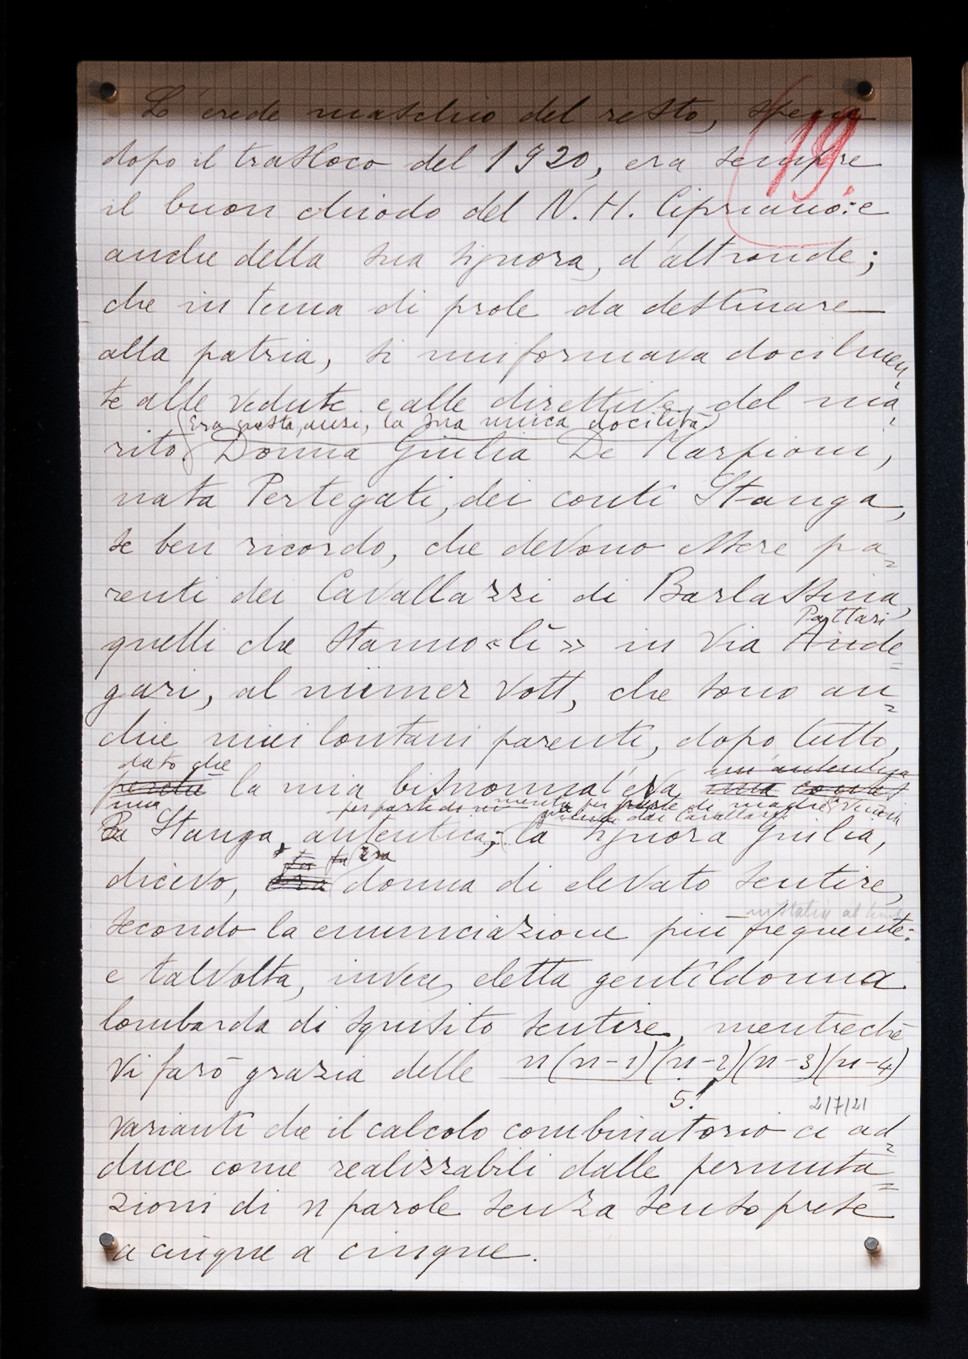 Lo erede maschio del resto, specie
19.
dopo il trasloco del 1920, era sempre
il buon chiodo del N. H. Cipriano: e
anche della sua signora, d'altronde;
che in tema di prole da destinare
alla patria, si uniformava docilmen=
te alle vedute e alle direttive del ma=
(Era questa, anzi, la sua unica docilità)
rito. Donna Giulia De Marpioni,
nata Pertegati, dei conti Stanga,
se ben ricordo, che devono essere pa=
renti dei Cavallazzi di Barlassina,
Pattari
quelli che stanno «lì» in Via Ande=
gari, al nümer vott, che sono an=
che miei lontani parenti, dopo tutto,
dato che
perché la mia bisnonna l'era
una
Stanga, autentica; la signora Giulia,
era
dicevo, era donna di elevato sentire,
secondo la enunciazione più frequente:
e talvolta, invece, eletta gentildonna
lombarda di squisito sentire, mentreché
vi farò grazia delle n(n-1)(n-2)(n-3)(n-4)
5!
2/7/21
varianti che il calcolo combinatorio ci ad=
duce come realizzabili dalle permuta=
zioni di n parole senza senso prese
a cinque a cinque.